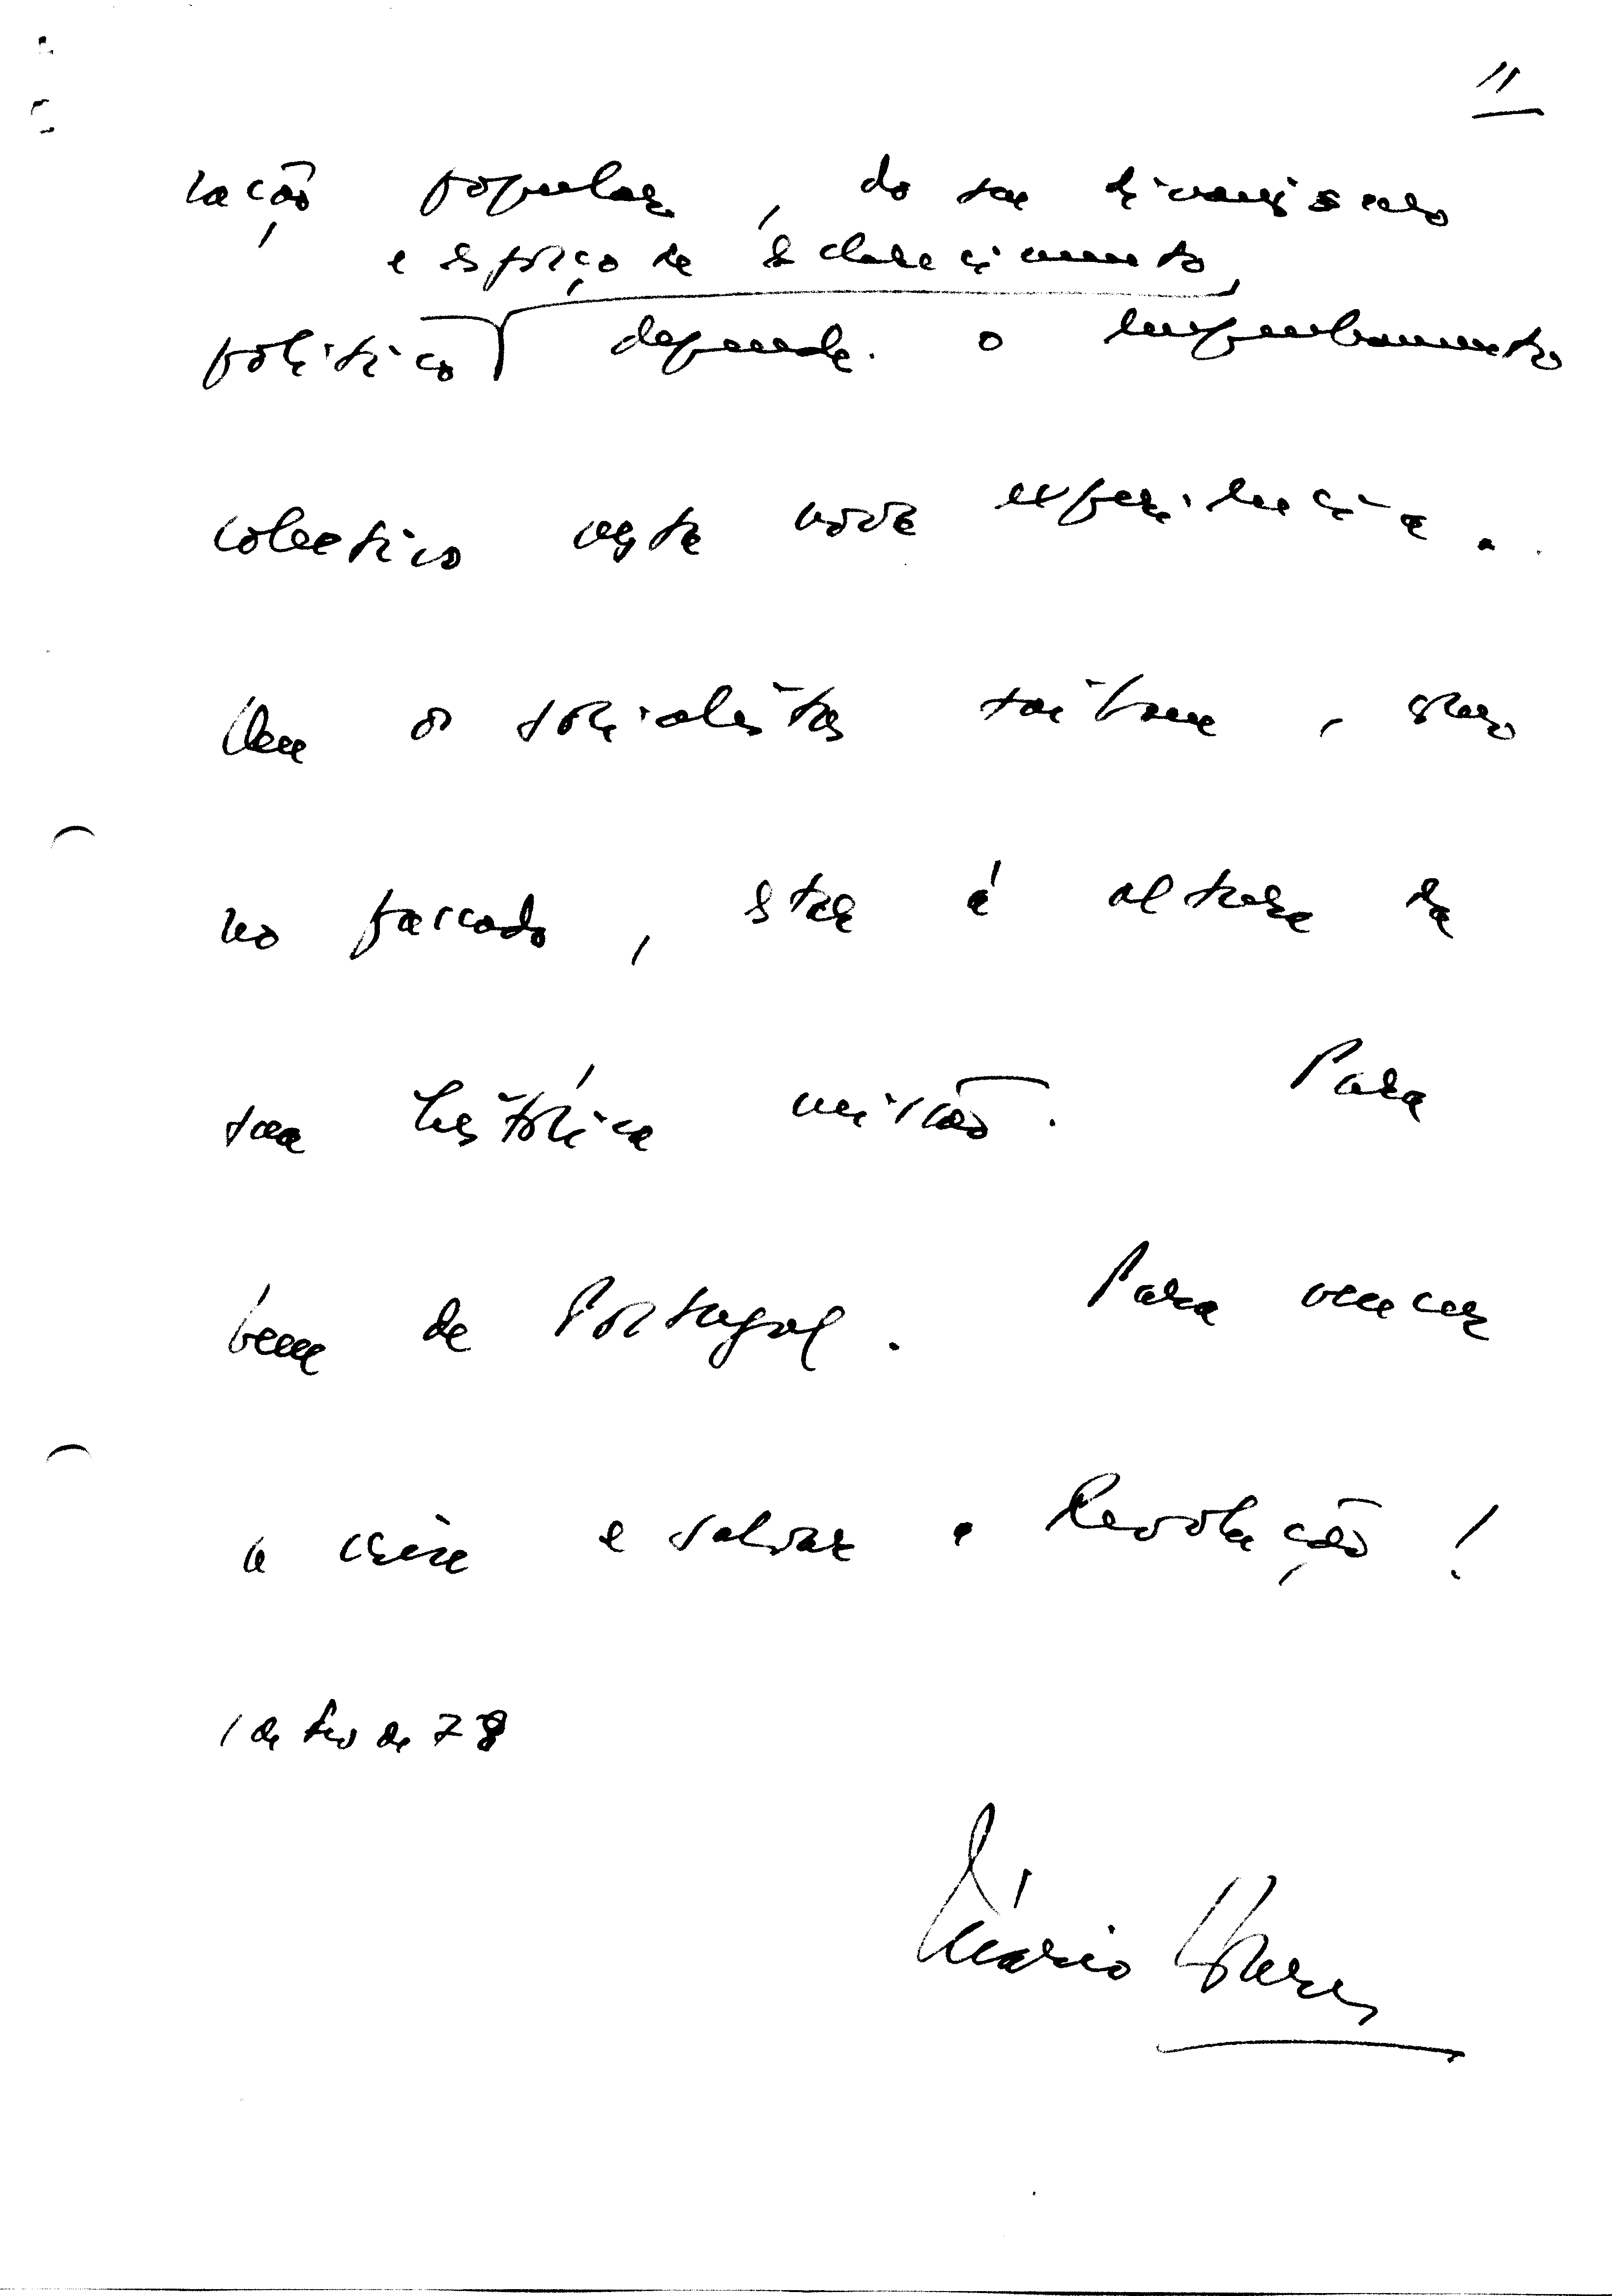 11
ração popular, do seu dinamismo
e esforço de esclarecimento,
político depende o empenhamento
colectivo nesta nova experiência.
Que os socialistas saibam, como
no passado, estar à altura da
sua histórica missão. Para
bem de Portugal. Para vencer
a crise e salvar a Revolução!
1 de de 78
Mário Soares